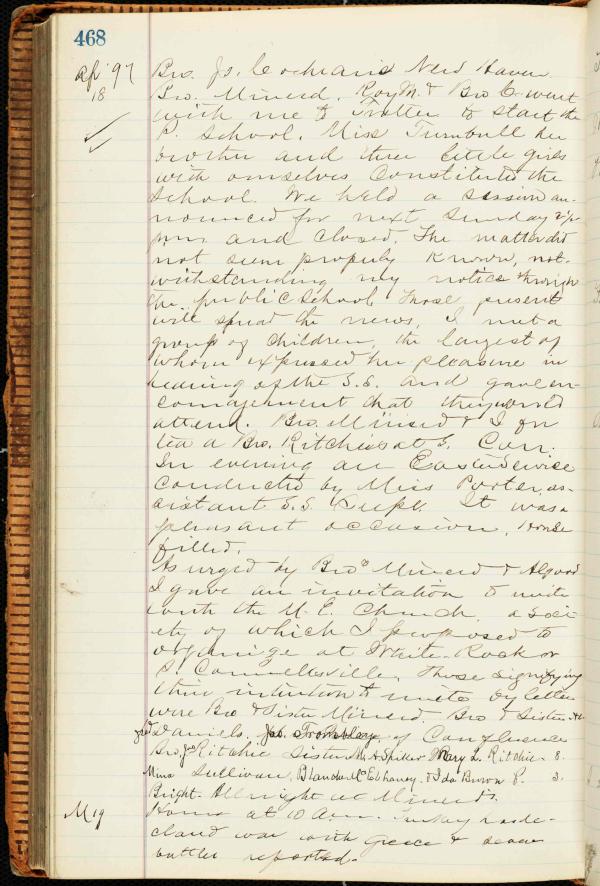 468
Ap '97 Bro. Js. Cochrans New Haven
18 Bro. Minerd. Roy M. & Bro C. went
with me to Trotter to start the
P. School. Miss Turnbull her
brother and three little girls
with ourselves Constituted the
School. We held a session an-
nounced for next Sunday 2 1/2
pm and closed. The matter did
not seem properly known, not-
withstanding my notice through
the public school. Those present
will spread the news. I met a
group of children, the largest of
whom expressed her pleasure in
hearing of the S.S. and gave en-
couragement that they would
attend. Bro. Minerd & I for
tea a Bro. Ritchies at S. Con.
In evening an Easter Service
conducted by Miss Porter, as-
sistant S.S. Supt. It was a
pleasant occasion. House
filled.
As urged by Bros Minerd & Algood
I gave an invitation to unite
with the M. E. Church, a soci-
ety of which I proposed to
organize at White Rock or
S. Connellsville. Those signifying
their intention to unite by letter
were Bro & Sister Minerd. Bro & Sister
Daniels. Jas. Trombley of Confluence
Bro. Js Ritchie Sister M. A. Spiker Mary L. Ritchie - 8.
Mina Sullivan, Blanda McElhaney. & Ida Brown P. 3.
Bright. All night at Minerd's.
M 19 Home at 10 A.m. Turkey has de-
clared war with Greece & severe
battles reported.